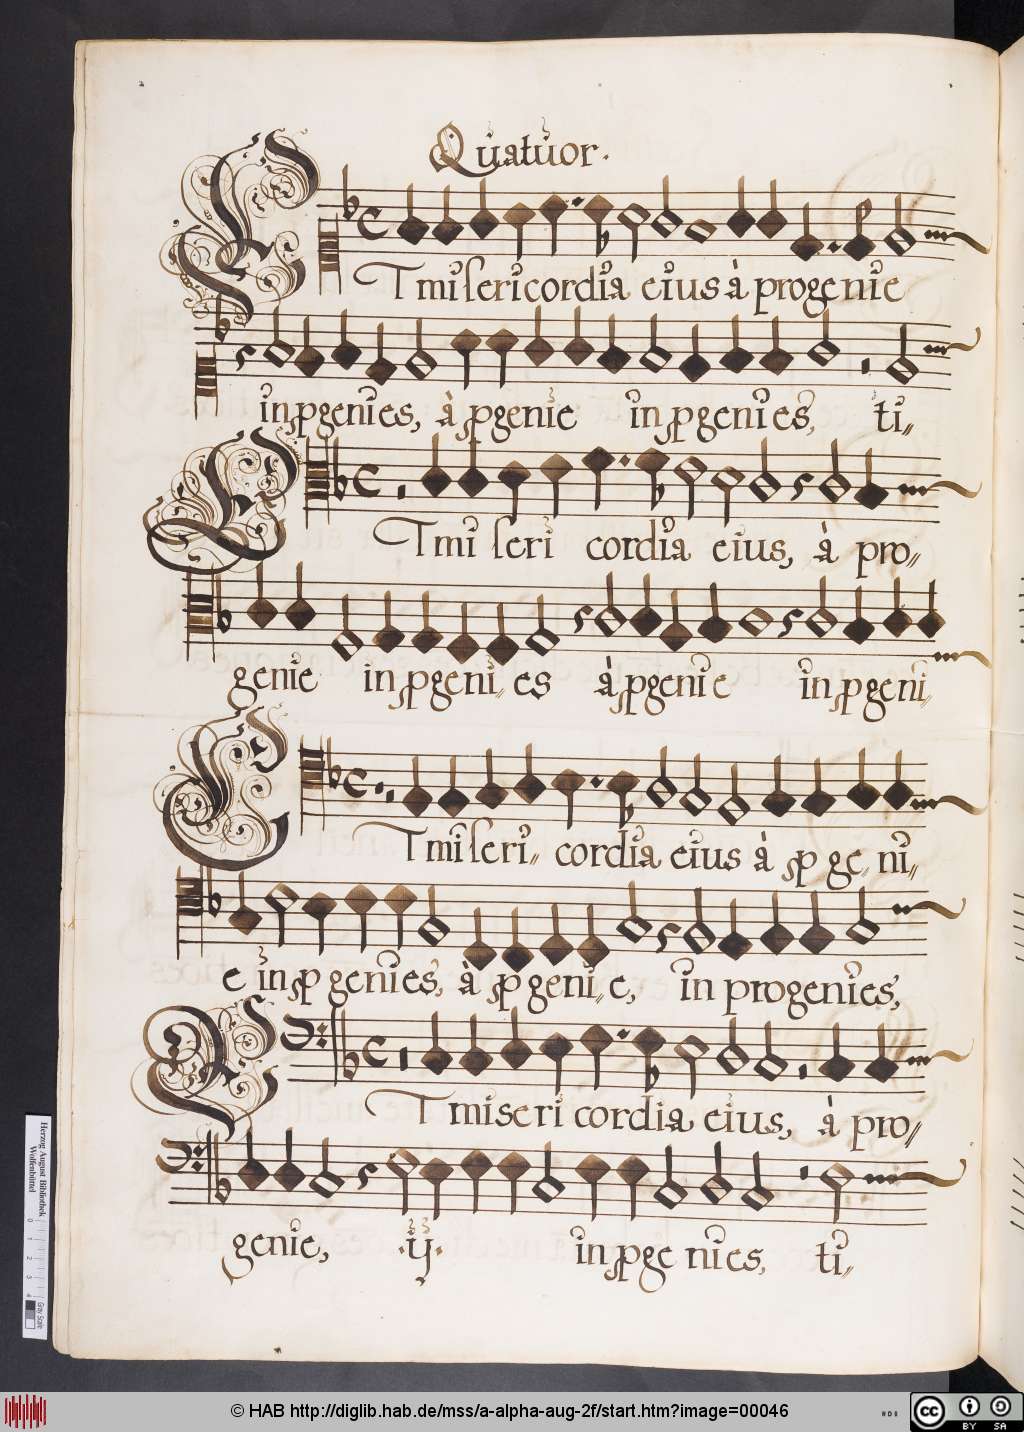 Quatuor.
Et misericordia eius à progenie
in pgenies, à pgenie in pgenies, ti„
Et miseri cordia eius, à pro„
genie in pgeni„es à pgenie in pgeni„
Et miseri„ cordia eius à p ge„ni„
e in pgenies, à pgeni„e, in progenies,
Et miseri cordia eius, à pro„
genie, .ij. in pge nies, ti„
Herzog August Bibliothek
Wolfenbüttel
0 1 2 3 4
Gray Scale
© HAB http://diglib.hab.de/mss/a-alpha-aug-2f/start.htm?image=00046
cc BY SA